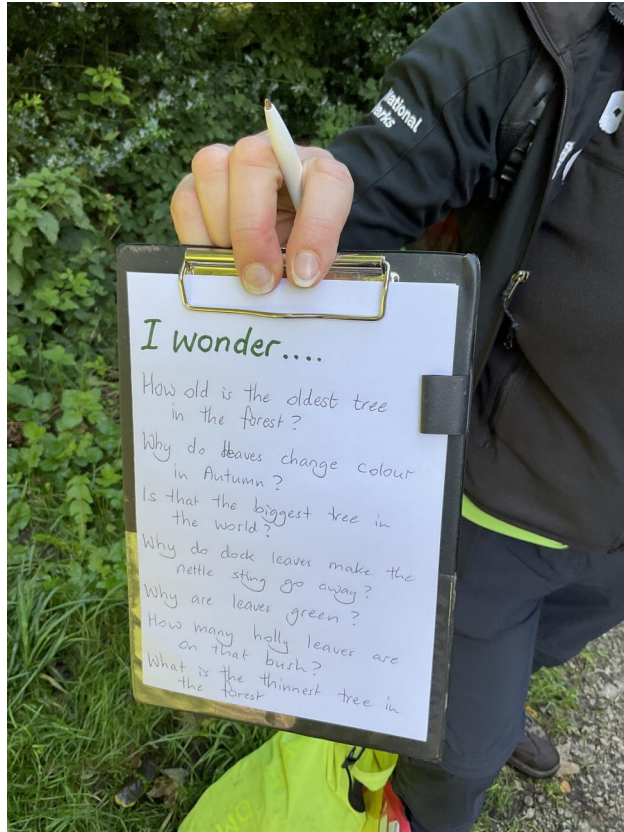 National
Parks
I wonder....
How old is the oldest tree
in the forest?
Why do leaves change colour
in Autumn?
Is that the biggest tree in
the world?
Why do dock leaves make the
nettle sting go away?
Why are leaves green?
How many holly leaves are
on that bush?
What is the thinnest tree in
the forest